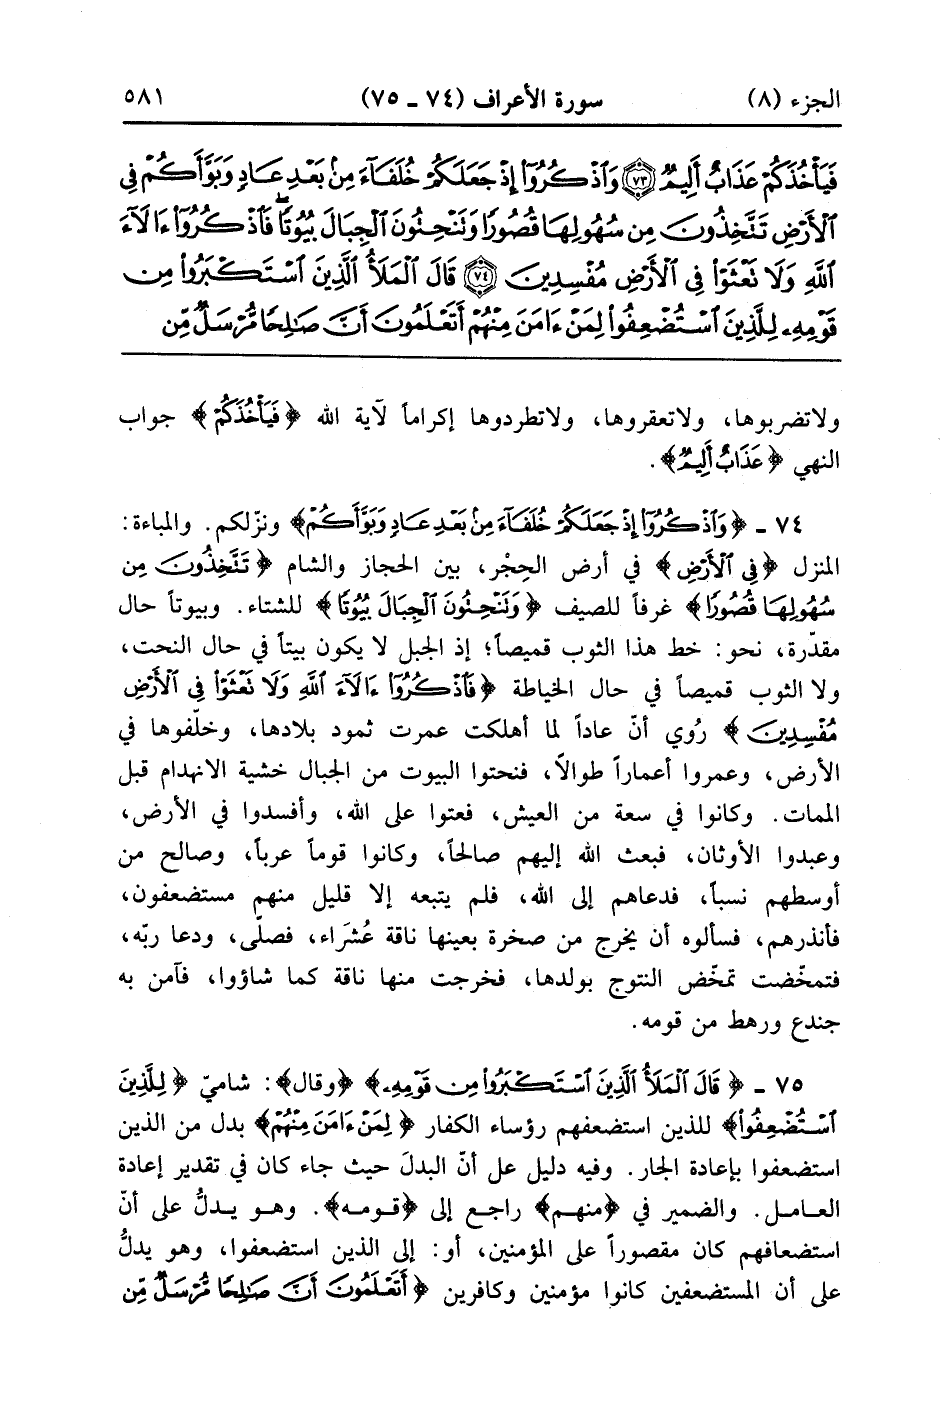 الجزء (٨) سورة الأعراف (٧٤ ـ ٧٥) ٥٨١
فَيَأْخُذَكُمْ عَذَابٌ أَلِيمٌ ﴿٧٣﴾ وَٱذْكُرُوٓا۟ إِذْ جَعَلَكُمْ خُلَفَآءَ مِنۢ بَعْدِ عَادٍ وَبَوَّأَكُمْ فِى
ٱلْأَرْضِ تَتَّخِذُونَ مِن سُهُولِهَا قُصُورًا وَتَنْحِتُونَ ٱلْجِبَالَ بُيُوتًا ۖ فَٱذْكُرُوٓا۟ ءَالَآءَ
ٱللَّهِ وَلَا تَعْثَوْا۟ فِى ٱلْأَرْضِ مُفْسِدِينَ ﴿٧٤﴾ قَالَ ٱلْمَلَأُ ٱلَّذِينَ ٱسْتَكْبَرُوا۟ مِن
قَوْمِهِۦ لِلَّذِينَ ٱسْتُضْعِفُوا۟ لِمَنْ ءَامَنَ مِنْهُمْ أَتَعْلَمُونَ أَنَّ صَٰلِحًا مُّرْسَلٌ مِّن
ولاتضربوها، ولاتعقروها، ولاتطردوها إكراماً لآية الله ﴿فَيَأْخُذَكُمْ﴾ جواب
النهي ﴿عَذَابٌ أَلِيمٌ﴾.
٧٤ ـ ﴿وَٱذْكُرُوٓا۟ إِذْ جَعَلَكُمْ خُلَفَآءَ مِنۢ بَعْدِ عَادٍ وَبَوَّأَكُمْ﴾ ونزّلكم. والمباءة:
المنزل ﴿فِى ٱلْأَرْضِ﴾ في أرض الحِجْر، بين الحجاز والشام ﴿تَتَّخِذُونَ مِن
سُهُولِهَا قُصُورًا﴾ غرفاً للصيف ﴿وَتَنْحِتُونَ ٱلْجِبَالَ بُيُوتًا﴾ للشتاء. وبيوتاً حال
مقدّرة، نحو: خط هذا الثوب قميصاً؛ إذ الجبل لا يكون بيتاً في حال النحت،
ولا الثوب قميصاً في حال الخياطة ﴿فَٱذْكُرُوٓا۟ ءَالَآءَ ٱللَّهِ وَلَا تَعْثَوْا۟ فِى ٱلْأَرْضِ
مُفْسِدِينَ﴾ رُوي أنّ عاداً لما أهلكت عمرت ثمود بلادها، وخلّفوها في
الأرض، وعمروا أعماراً طوالاً، فنحتوا البيوت من الجبال خشية الانهدام قبل
الممات. وكانوا في سعة من العيش، فعتوا على الله، وأفسدوا في الأرض،
وعبدوا الأوثان، فبعث الله إليهم صالحاً، وكانوا قوماً عرباً، وصالح من
أوسطهم نسباً، فدعاهم إلى الله، فلم يتبعه إلا قليل منهم مستضعفون،
فأنذرهم، فسألوه أن يخرج من صخرة بعينها ناقة عُشَراء، فصلّى، ودعا ربّه،
فتمخّضت تمخّض النتوج بولدها، فخرجت منها ناقة كما شاؤوا، فآمن به
جندع ورهط من قومه.
٧٥ ـ ﴿قَالَ ٱلْمَلَأُ ٱلَّذِينَ ٱسْتَكْبَرُوا۟ مِن قَوْمِهِۦ﴾ ﴿وقال﴾: شاميّ ﴿لِلَّذِينَ
ٱسْتُضْعِفُوا۟﴾ للذين استضعفهم رؤساء الكفار ﴿لِمَنْ ءَامَنَ مِنْهُمْ﴾ بدل من الذين
استضعفوا بإعادة الجار. وفيه دليل على أنّ البدلَ حيث جاء كان في تقدير إعادة
العامل. والضمير في ﴿منهم﴾ راجع إلى ﴿قومه﴾. وهو يدلُّ على أنّ
استضعافهم كان مقصوراً على المؤمنين، أو: إلى الذين استضعفوا، وهو يدلُّ
على أن المستضعفين كانوا مؤمنين وكافرين ﴿أَتَعْلَمُونَ أَنَّ صَٰلِحًا مُّرْسَلٌ مِّن